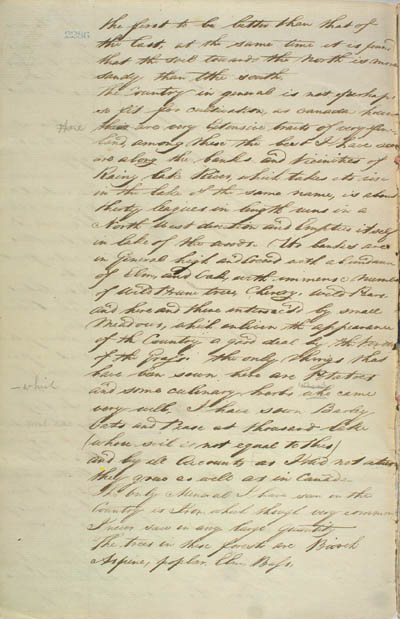 2286
the first to be better than that of
the last, at the same time it is found
that the soil towards the North is more
sandy than the south
the Country in general is not perhaps
so fit for cultivation, as Canada
there
are very extensive tracts of very fine
land, among these the best I have seen
are along the banks and vicinities of
Rainy Lake River, which takes its rise
in the lake of the same name, is about
thirty leagues in length runs in a
North West direction and Empties itself
in lake of the woods. Its banks are
in general high and wooded with abundance
of Elm and Oak with immense number
of wild Plum trees, Cherry, wild Pears
and here and there intersec'd by small
Meadows, which enliven the appearance
of the Country a good deal by the
of the Grass. the only things that
have been sown here are Potatoes
which
and some culinary herbs who came
very well, I have sown Barley
Oats and Pease at thousand Lake
(whose soil is not equal to this)
and by all Accounts as I did not
they grow as well as in Canada
The only Mineral I have seen in the
Country is Iron which though very common
I never saw in any large quantity
The trees in these forests are Birch
Aspine, poplar, Elm, Bass.